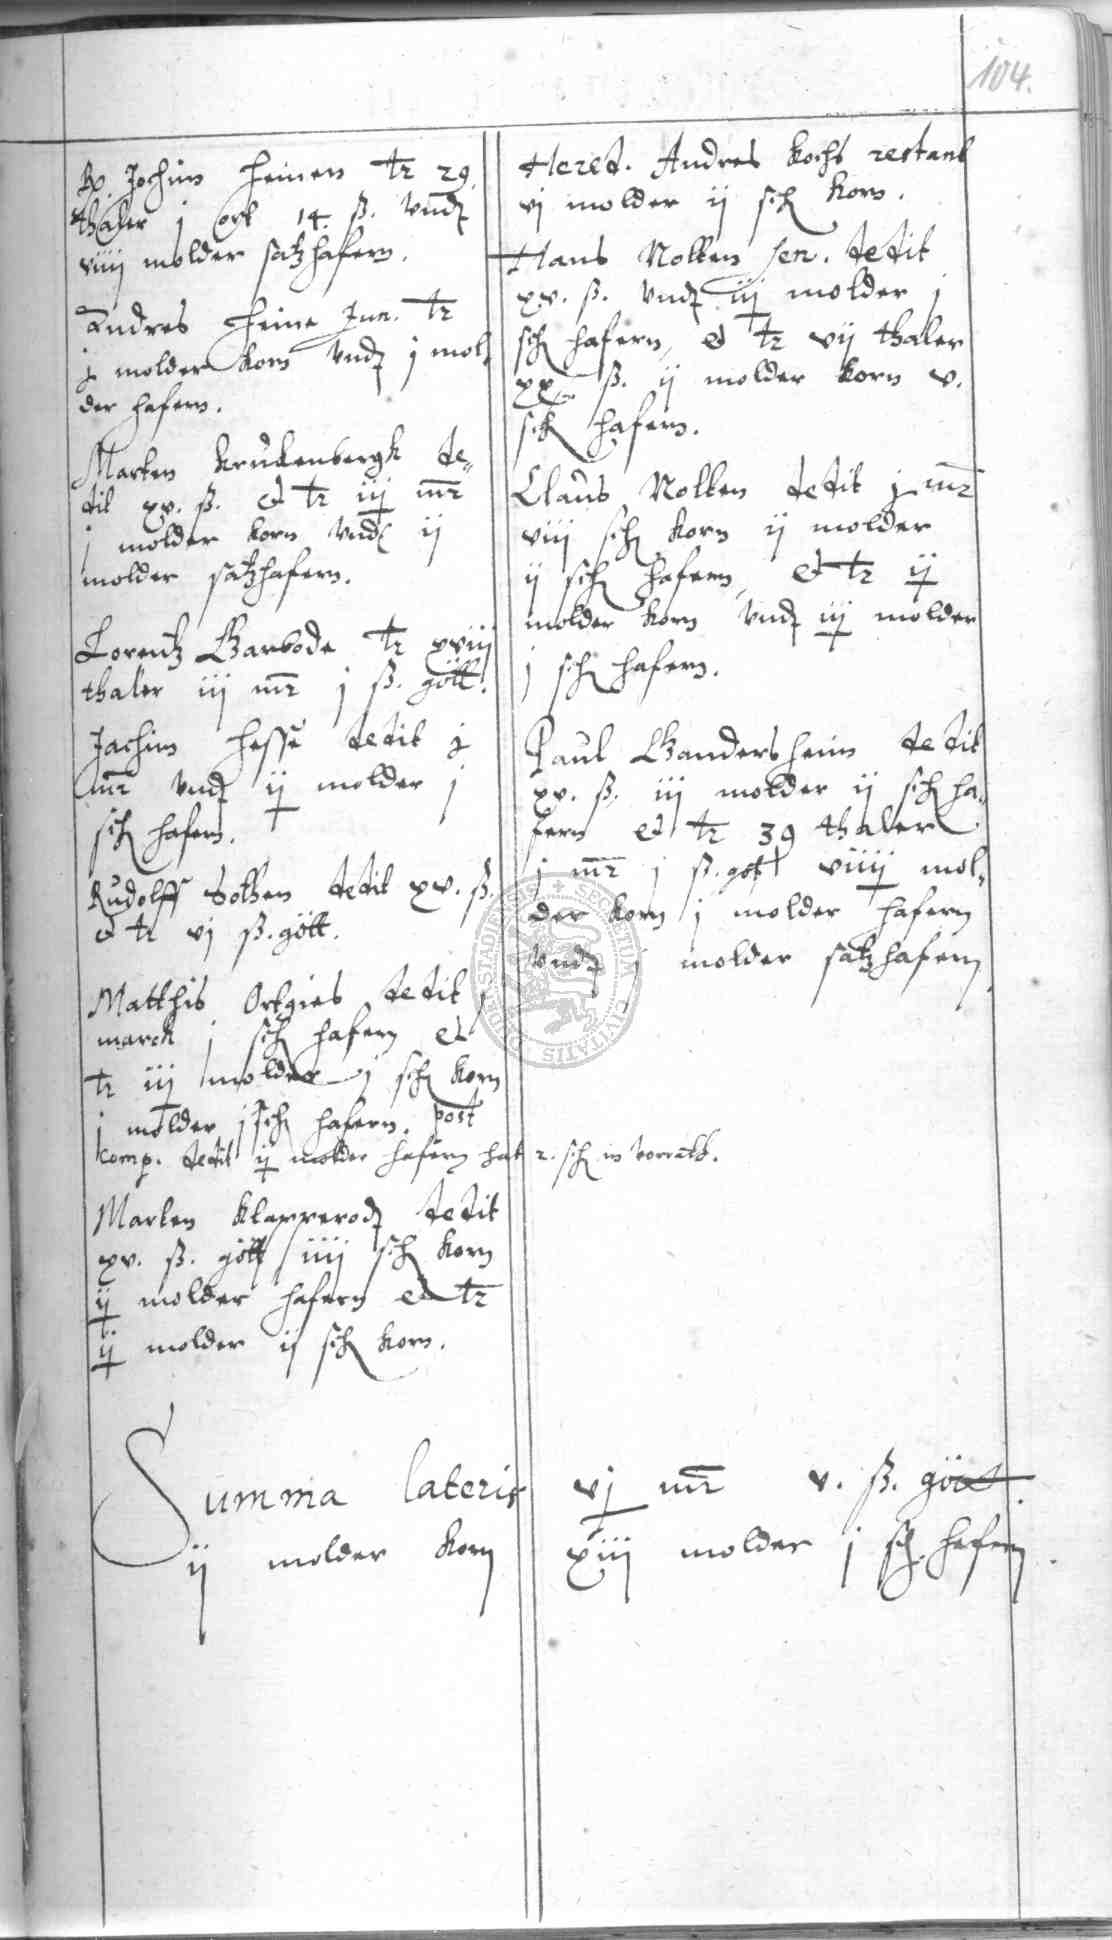 104.
Rp. Jochim Heinen tr 29.
thaler j ort 14. ß. vndt
viiij molder satzhafern.
Andres Heine Jun. tr
j molder korn vndt j mol-
der hafern.
Marten Krukenbergk de-
dit xv. ß. et tr iij mr
j molder korn vnd ij
molder satzhafern.
Lorentz Barbode tr xviij
thaler iij mr j ß. gött.
Jachim Hesse dedit j
mr vndt ij molder j
sch hafern.
Rudolff Sothen dedit xv. ß.
et tr vj ß. gött.
Matthis Ortgies dedit j
marck j sch hafern et
tr iij molder j sch korn
j molder j sch hafern. post
comp. dedit ij molder hafern hat 2. sch in vorrath.
Marten Klapperodt dedit
xv. ß. gött iiij sch korn
ij molder hafern et tr
ij molder ij sch korn.
Hered. Andres Kochs restant
vj molder ij sch korn.
Hans Nolten sen. dedit
xv. ß. vndt iij molder j
sch hafern, et tr vij thaler
xx ß. ij molder korn v.
sch hafern.
Claus Nolten dedit j mr
viij sch korn ij molder
ij sch hafern, et tr ij
molder korn vndt iij molder
j sch hafern.
Paul Gandersheim dedit
xv. ß. iij molder ij sch ha-
fern et tr 39 thaler
j mr j ß. gött viiij mol-
der korn j molder hafern
vndt j molder satzhafern
Summa lateris vj mr v. ß. gött.
ij molder korn xiij molder j sch. hafern.
SECRETUM CIVITATIS DUDERSTADIENSIS